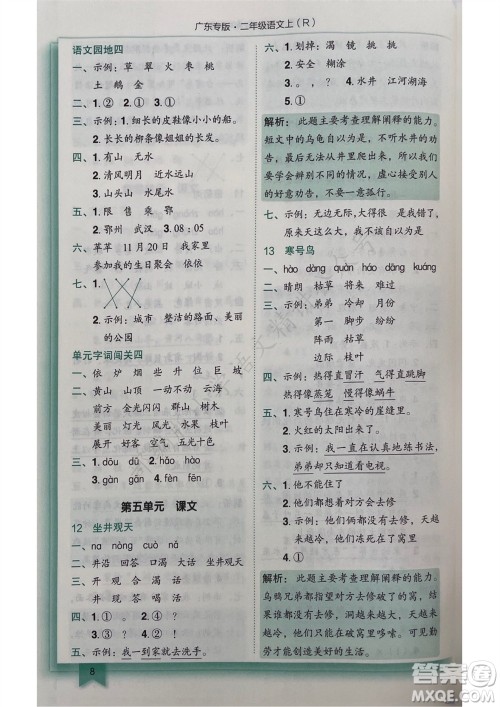 广东专版·二年级语文上（R）
语文园地四
一、示例：草 翠 火 枣 桃
土 鹅 金
二、1.② 2.①
三、1.示例：细长的皮鞋像小小的船。
2.长长的柳条像姐姐的长发。
四、1.有山 无水
2.清风明月 近水远山
3.山头山 水尾水
五、1.限 售 乘 鄂
2.鄂州 武汉 3.08：05
六、苹苹 11月20日 我家里
参加我的生日聚会 依依
七、1.
2.示例：城市 整洁的路面、美丽
的公园
单元字词闯关四
一、依 炉 烟 些 升 巨 位 每
二、黄山 山顶 一动不动 云海
前方 金光闪闪 群山 名胜古迹
美丽 灯光 月光 中央 其中
展开 好客 空气 五光十色
三、1.dōu dū 2.hǎo hào
3.gāi gài 4.fèn fēn
第五单元 课文
12 坐井观天
一、na nòng cuò ná
二、井沿 回答 口渴 大话 无边无际
三、开 观 合 渴 话
井 现 答 喝 舌
四、1.④ 2.① ④ 2.？ ！
3.② 4.③ 5.①
五、示例：我一到家就去洗手。
六、1.划掉：渴 镜 挑 哄
2.安全 糊涂
3.。 ？ 4.水井 江河湖海
5.①
解析：此题主要考查理解阐释的能力。
短文中的乌龟自以为是，不听水井的劝
告，最后再也无法从井里爬出来，所以我
们要学会辨别不同的意见，虚心接受别人
的好意劝告，不要一意孤行。
七、示例：无边无际，大得很 是我错了，
原来天这么大，我不该自以为是
13 寒号鸟
一、hào dàng quàn hǎo dāng kuáng
二、晴朗 枯草 将来 难过
三、示例：弟弟 冷却 月份
第一 脚步 份量
阵雨 枯草
边际 枝叶
四、示例：热得直冒汗 气得直跳脚
热得像蒸笼 慢得像蜗牛
五、1.寒号鸟住在寒冷的崖缝里。
2.火红的太阳出来了。
3.示例：我一直在认真地练书法，
弟弟却只知道看电视。
六、1.他不能住了
2.示例：他们俩都不会冷，天越
来越冷了，应该快点去修
3.示例：他们俩没有去修，天越
来越冷，窝越来越破
4.①
解析：此题主要考查理解阐释的能力。
乌鸦兄弟都不去修破了的窝，导致天越
来越冷，窝越来越破。可见勤
劳才能创造美好的生活。
8
答案圈
MXQE.COM